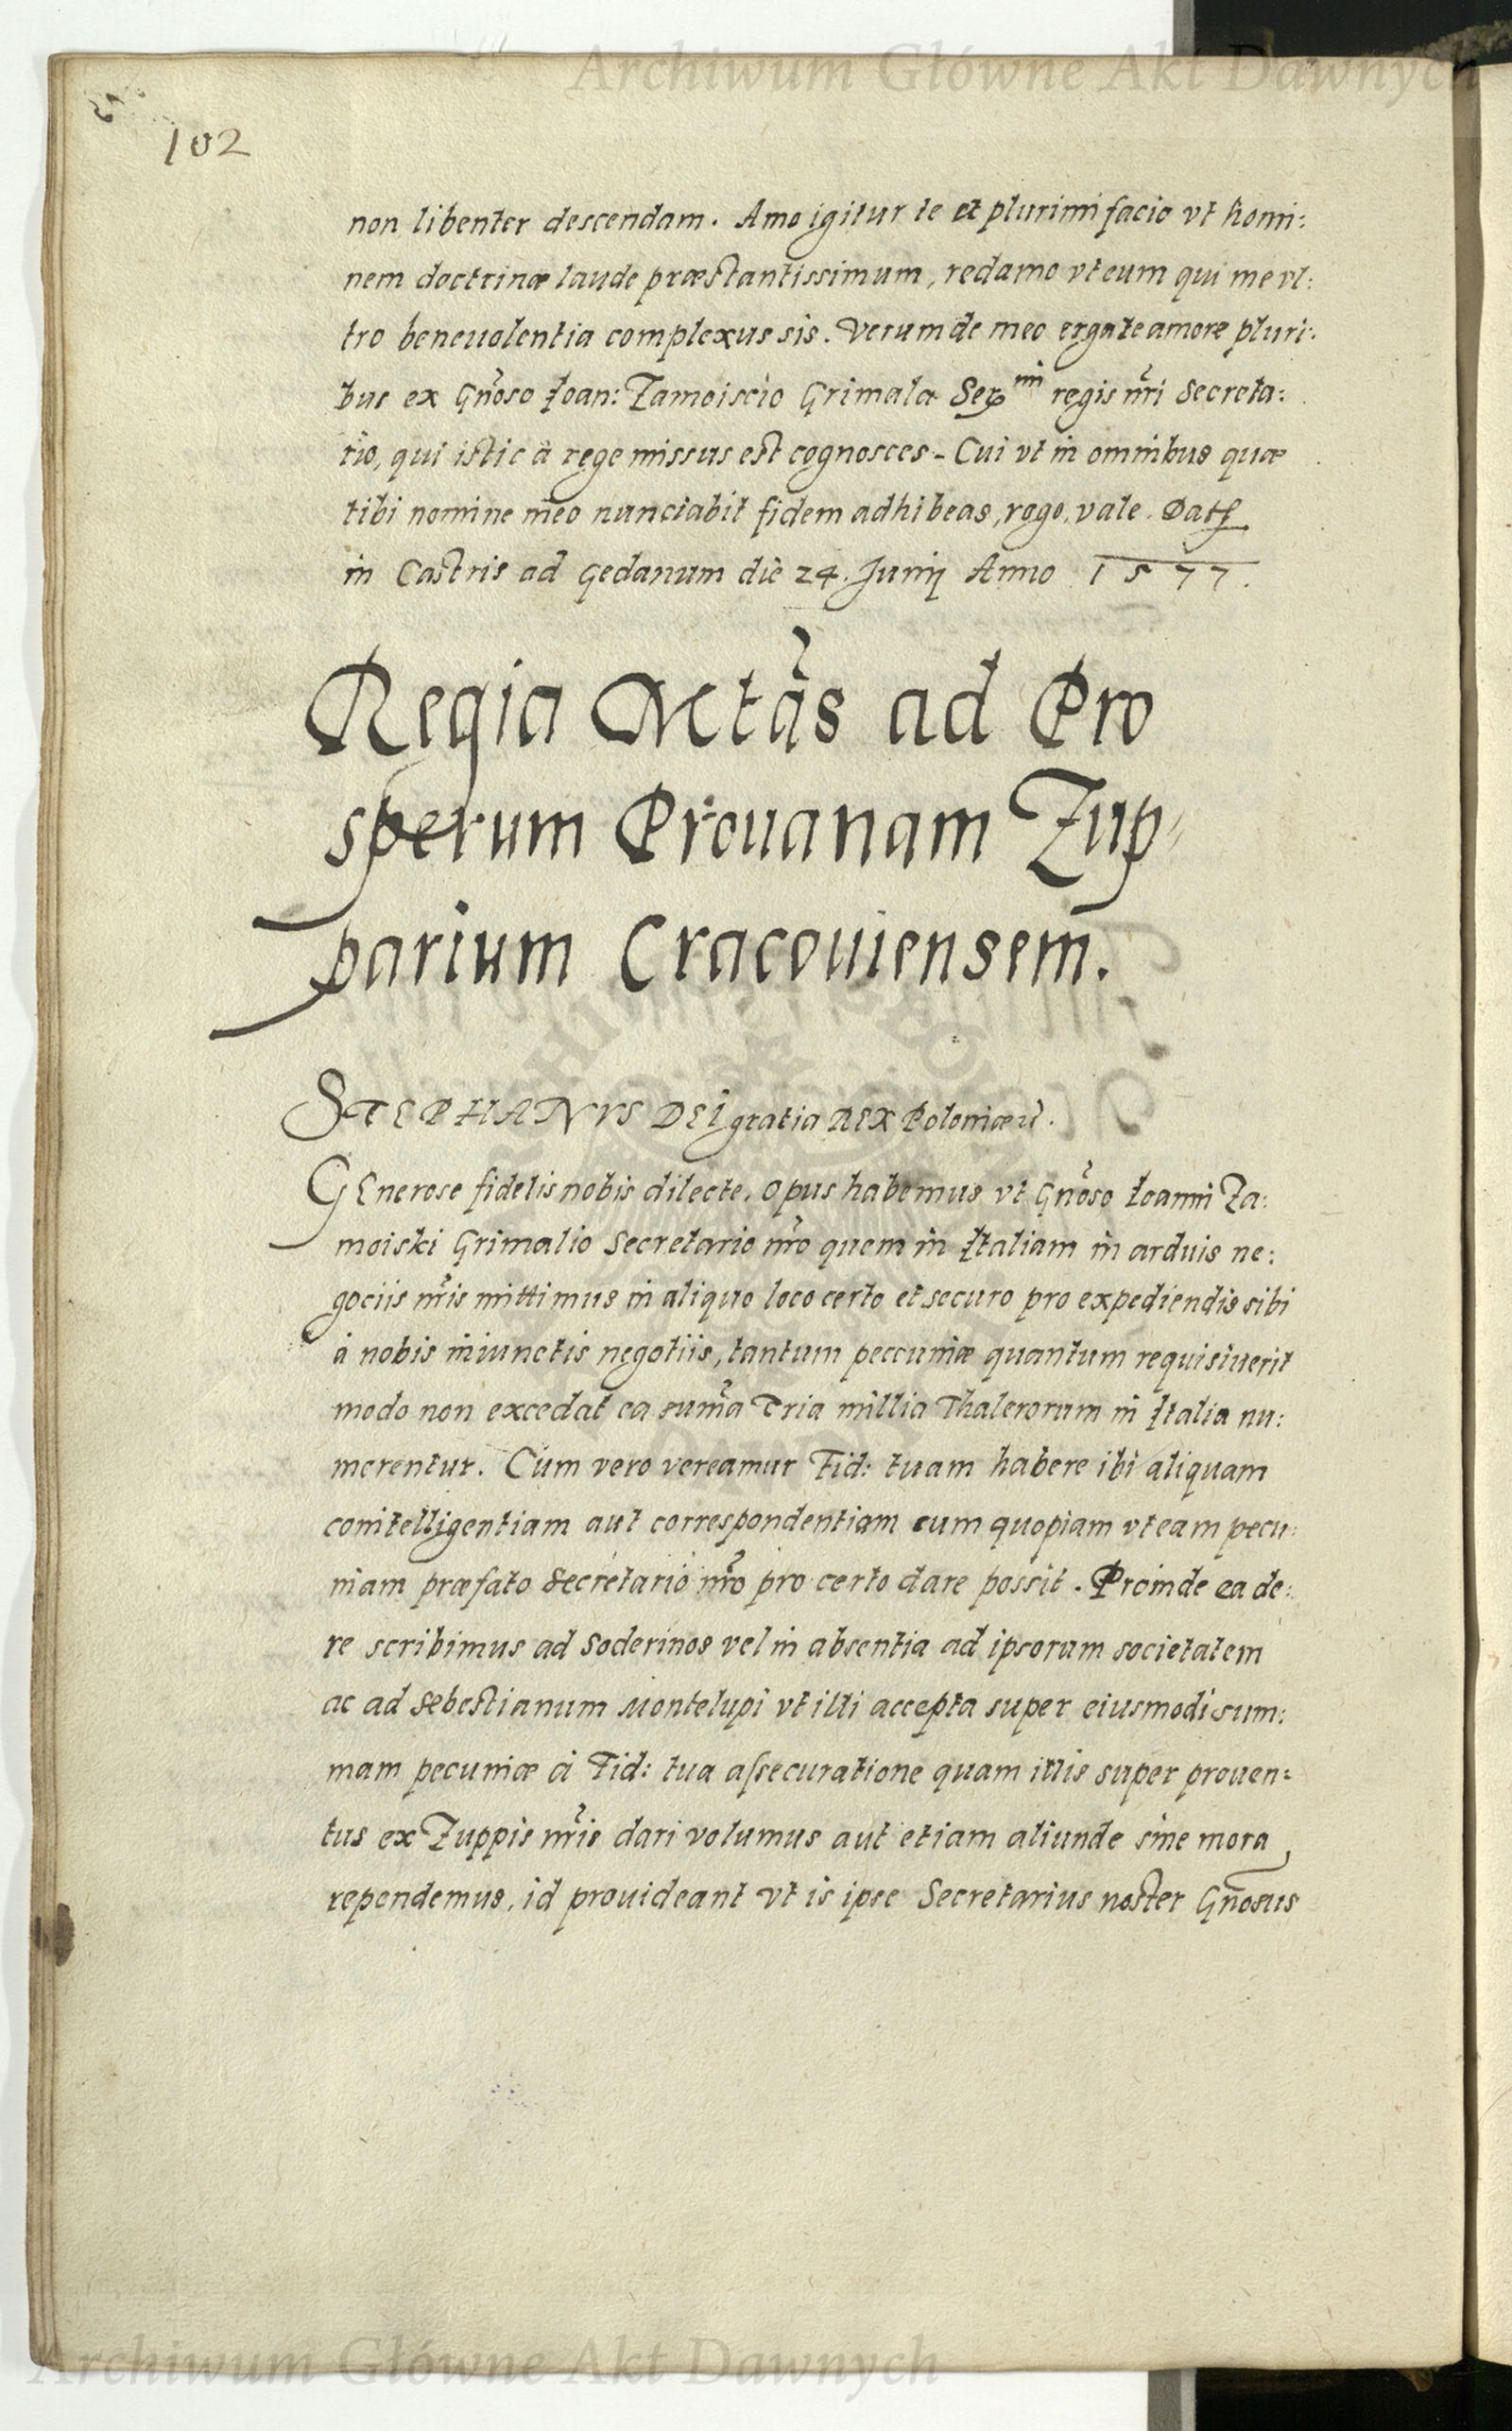 Archiwum Główne Akt Dawnych
102
non libenter descendam. Amo igitur te et plurimi facio vt homi:
nem doctrinæ laude præstantissimum, redamo vt eum qui me vl:
tro beneuolentia complexus sis. Verum de meo erga te amore pluri:
bus ex Gñoso Joan: Zamoiscio Grimala regis nři Secreta:
rio, qui istic à rege missus est cognosces. Cui vt in omnibus quæ
tibi nomine meo nunciabit fidem adhibeas, rogo, vale. Dat
in Castris ad Gedanum die 24. Junij Anno 1577.
Regia Mtãs ad Pro
sperum Prouanam Zup
parium Cracouiensem.
STEPHANVS DEI gratia REX Poloniæ
GEnerose fidelis nobis dilecte. Opus habemus vt Gñoso Joanni Za:
moiski Grimalio Secretario nřo quem in Italiam in arduis ne:
gociis nřis mittimus in aliquo loco certo et securo pro expediendis sibi
à nobis iniunctis negotiis, tantum peccuniæ quantum requisiuerit
modo non excedat ea suma Tria millia Thalerorum in Italia nu:
merentur. Cum vero vereamur Fid: tuam habere ibi aliquam
conitelligentiam aut correspondentiam cum quopiam vt eam pecu:
niam præfato Secretario nřo pro certo dare possit. Proinde ea de:
re scribimus ad Soderinos vel in absentia ad ipsorum societatem
ac ad Sebestianum Montelupi vt illi accepta super eiusmodi sum:
mam pecuniæ à Fid: tua assecuratione quam illis super prouen:
tus ex Zuppis nřis dari volumus aut etiam aliunde sine mora
rependemus, id prouideant vt is ipse Secretarius noster Gñosus
Archiwum Główne Akt Dawnych